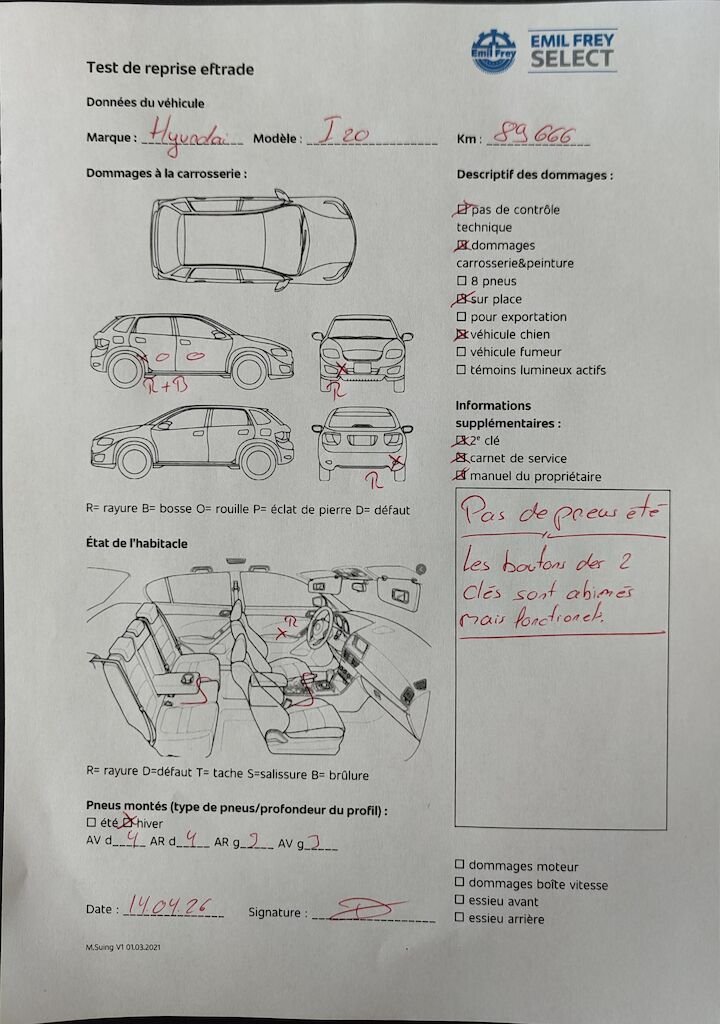 Emil Frey
EMIL FREY
SELECT
Test de reprise eftrade
Données du véhicule
Marque : Hyundai Modèle : I20 Km : 89 666
Dommages à la carrosserie :
R+B
R
R
R= rayure B= bosse O= rouille P= éclat de pierre D= défaut
État de l'habitacle
R
R= rayure D=défaut T= tache S=salissure B= brûlure
Pneus montés (type de pneus/profondeur du profil) :
☐ été ☒ hiver
AV d 4 AR d 4 AR g 3 AV g 3
Date : 14.04.26 Signature :
M.Suing V1 01.03.2021
Descriptif des dommages :
☒ pas de contrôle
technique
☒ dommages
carrosserie&peinture
☐ 8 pneus
☒ sur place
☐ pour exportation
☒ véhicule chien
☐ véhicule fumeur
☐ témoins lumineux actifs
Informations
supplémentaires :
☒ 2e clé
☒ carnet de service
☒ manuel du propriétaire
Pas de pneus été
Les boutons des 2
clés sont abimés
mais fonctionels.
☐ dommages moteur
☐ dommages boîte vitesse
☐ essieu avant
☐ essieu arrière